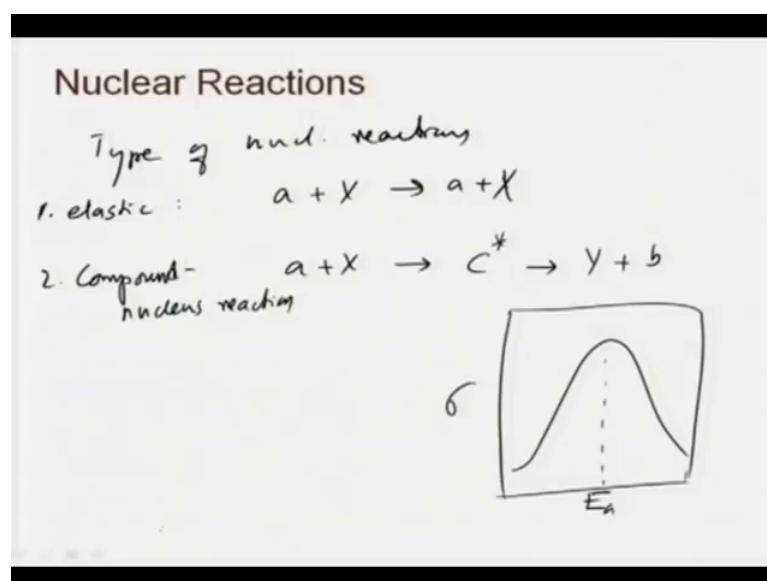 Nuclear Reactions
Type of nucl. reactions
1. elastic : a + X → a + X
2. Compound- a + X → C* → Y + b
nucleus reaction
σ
Ea